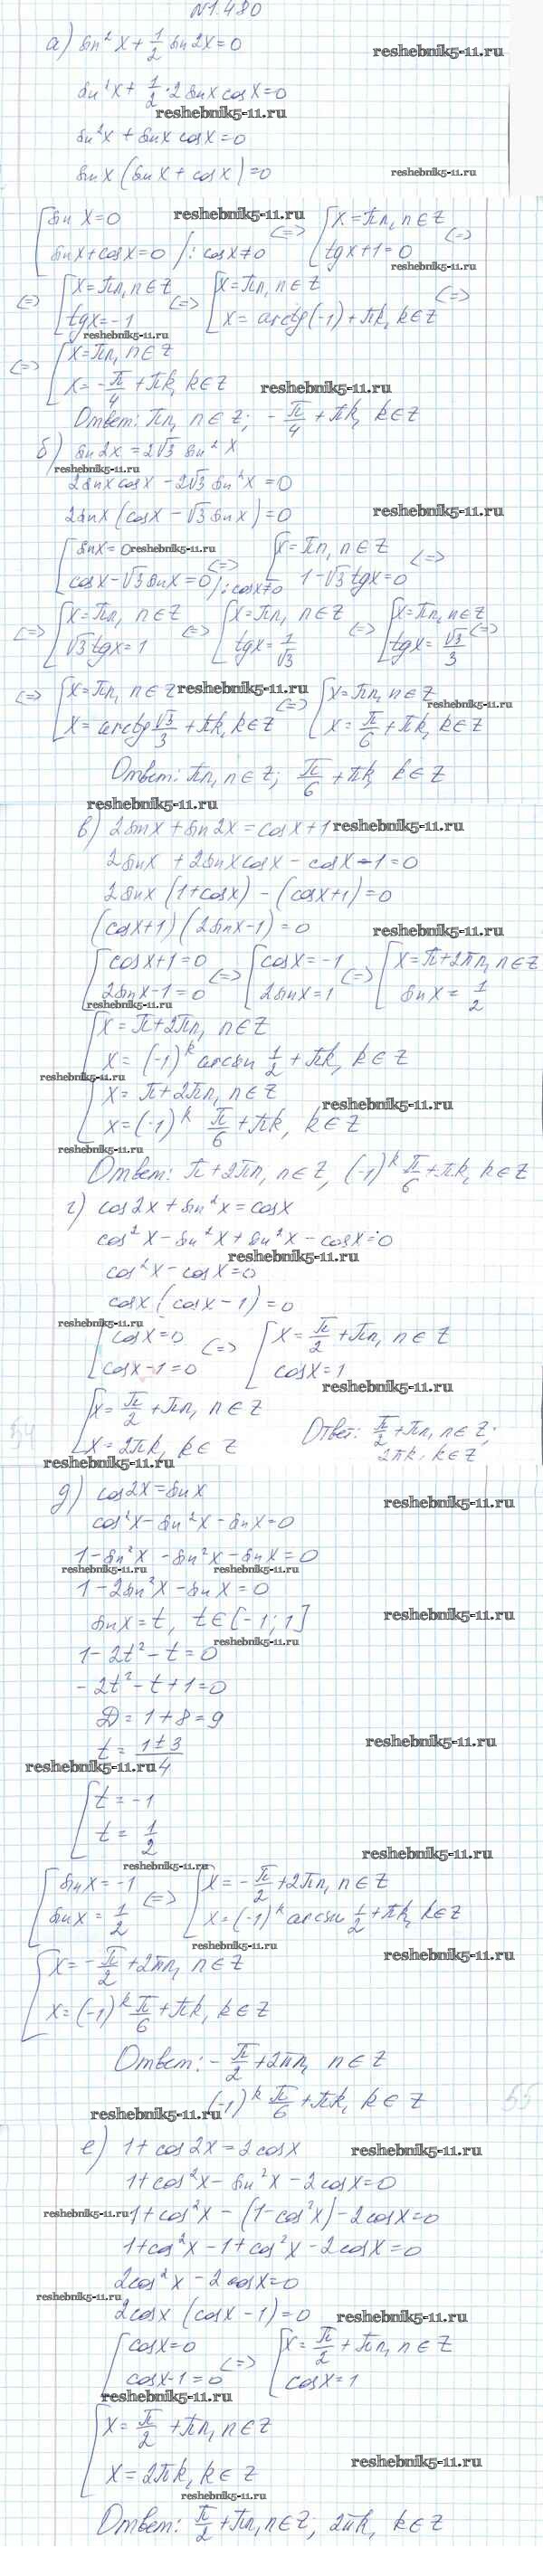 N 1.480
а) sin² x + 1/2 sin 2x = 0
reshebnik5-11.ru
sin² x + 1/2 · 2 sin x cos x = 0
reshebnik5-11.ru
sin² x + sin x cos x = 0
sin x (sin x + cos x) = 0 reshebnik5-11.ru
[ sin x = 0 reshebnik5-11.ru [ x = πn, n ∈ Z
sin x + cos x = 0 |: cos x ≠ 0 <=> tg x + 1 = 0 <=>
reshebnik5-11.ru
<=> [ x = πn, n ∈ Z <=> [ x = πn, n ∈ Z <=>
tg x = -1 x = arctg(-1) + πk, k ∈ Z
reshebnik5-11.ru
<=> [ x = πn, n ∈ Z
x = -π/4 + πk, k ∈ Z reshebnik5-11.ru
Ответ: πn, n ∈ Z; -π/4 + πk, k ∈ Z
б) sin 2x = 2√3 sin² x
reshebnik5-11.ru
2 sin x cos x - 2√3 sin² x = 0
2 sin x (cos x - √3 sin x) = 0 reshebnik5-11.ru
[ sin x = 0 reshebnik5-11.ru <=> [ x = πn, n ∈ Z <=>
cos x - √3 sin x = 0 |: cos x ≠ 0 1 - √3 tg x = 0
<=> [ x = πn, n ∈ Z <=> [ x = πn, n ∈ Z <=> [ x = πn, n ∈ Z <=>
√3 tg x = 1 tg x = 1/√3 tg x = √3/3
<=> [ x = πn, n ∈ Z reshebnik5-11.ru <=> [ x = πn, n ∈ Z
reshebnik5-11.ru
x = arctg √3/3 + πk, k ∈ Z x = π/6 + πk, k ∈ Z
Ответ: πn, n ∈ Z; π/6 + πk, k ∈ Z
reshebnik5-11.ru
в) 2 sin x + sin 2x = cos x + 1 reshebnik5-11.ru
2 sin x + 2 sin x cos x - cos x - 1 = 0
2 sin x (1 + cos x) - (cos x + 1) = 0
(cos x + 1)(2 sin x - 1) = 0 reshebnik5-11.ru
[ cos x + 1 = 0 <=> [ cos x = -1 <=> [ x = π + 2πn, n ∈ Z
2 sin x - 1 = 0 2 sin x = 1 sin x = 1/2
reshebnik5-11.ru
[ x = π + 2πn, n ∈ Z
x = (-1)^k arcsin 1/2 + πk, k ∈ Z
reshebnik5-11.ru
[ x = π + 2πn, n ∈ Z reshebnik5-11.ru
x = (-1)^k π/6 + πk, k ∈ Z
reshebnik5-11.ru
Ответ: π + 2πn, n ∈ Z, (-1)^k π/6 + πk, k ∈ Z
г) cos 2x + sin² x = cos x
cos² x - sin² x + sin² x - cos x = 0
reshebnik5-11.ru
cos² x - cos x = 0
cos x (cos x - 1) = 0
reshebnik5-11.ru
[ cos x = 0 <=> [ x = π/2 + πn, n ∈ Z
cos x - 1 = 0 cos x = 1
reshebnik5-11.ru
[ x = π/2 + πn, n ∈ Z Ответ: π/2 + πn, n ∈ Z;
x = 2πk, k ∈ Z 2πk, k ∈ Z
reshebnik5-11.ru
д) cos 2x = sin x reshebnik5-11.ru
cos² x - sin² x - sin x = 0
1 - sin² x - sin² x - sin x = 0
reshebnik5-11.ru reshebnik5-11.ru
1 - 2 sin² x - sin x = 0
sin x = t, t ∈ [-1; 1] reshebnik5-11.ru
reshebnik5-11.ru
1 - 2t² - t = 0
-2t² - t + 1 = 0
D = 1 + 8 = 9
t = 1 ± 3 / 4 reshebnik5-11.ru
reshebnik5-11.ru
[ t = -1
t = 1/2
reshebnik5-11.ru
reshebnik5-11.ru
[ sin x = -1 <=> [ x = -π/2 + 2πn, n ∈ Z
sin x = 1/2 x = (-1)^k arcsin 1/2 + πk, k ∈ Z
reshebnik5-11.ru
[ x = -π/2 + 2πn, n ∈ Z reshebnik5-11.ru
x = (-1)^k π/6 + πk, k ∈ Z
Ответ: -π/2 + 2πn, n ∈ Z
(-1)^k π/6 + πk, k ∈ Z 55
reshebnik5-11.ru
е) 1 + cos 2x = 2 cos x reshebnik5-11.ru
1 + cos² x - sin² x - 2 cos x = 0
reshebnik5-11.ru 1 + cos² x - (1 - cos² x) - 2 cos x = 0
1 + cos² x - 1 + cos² x - 2 cos x = 0
2 cos² x - 2 cos x = 0
reshebnik5-11.ru
2 cos x (cos x - 1) = 0 reshebnik5-11.ru
[ cos x = 0 <=> [ x = π/2 + πn, n ∈ Z
cos x - 1 = 0 cos x = 1
reshebnik5-11.ru
[ x = π/2 + πn, n ∈ Z
reshebnik5-11.ru
x = 2πk, k ∈ Z
reshebnik5-11.ru
Ответ: π/2 + πn, n ∈ Z, 2πk, k ∈ Z